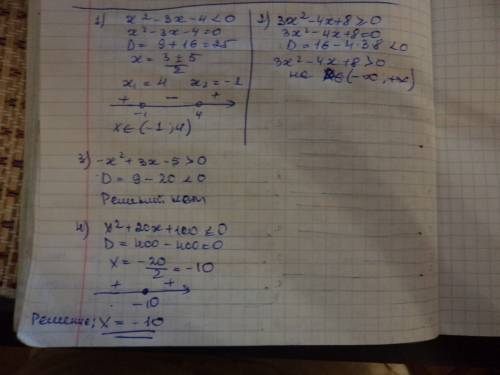 1) x² - 3x - 4 < 0
x² - 3x - 4 = 0
D = 9 + 16 = 25
x = (3 ± 5)/2
x₁ = 4 x₂ = -1
+ - +
-1 4
x ∈ (-1; 4)
2) 3x² - 4x + 8 ≥ 0
3x² - 4x + 8 = 0
D = 16 - 4·3·8 < 0
3x² - 4x + 8 > 0
на x ∈ (-∞; +∞)
3) -x² + 3x - 5 > 0
D = 9 - 20 < 0
Решений нет
4) x² + 20x + 100 ≤ 0
D = 400 - 400 = 0
x = -20/2 = -10
+ +
-10
Решение: x = -10